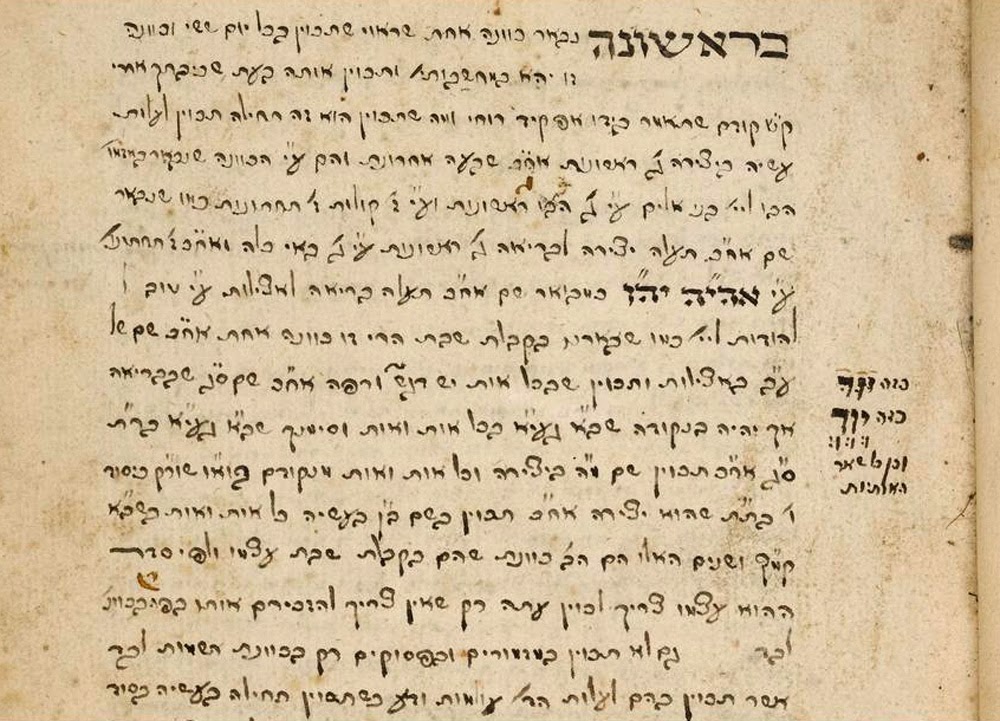 בראשונה נבאר כוונה אחת שראוי שתכוין בכל יום ששי וכוונה
זו יהא במחשבות/ ותכוין אותה בעת שכיבתך אחרי
ק"ש קודם שתאמר בידו אפקיד רוחי ומה שתכוין הוא זה תחילה תכוין לעלות
עשיה ביצירה ג' ראשונות אח"כ שבעה אחרונות והם ע"י הכוונה שנבאר
הבו לי"י בני אלים ע"י ג' הבו ראשונות וע"י ז' קולות ז' תחתונות כמו שנבאר
שם אח"כ תעלה יצירה לבריאה ג' ראשונות ע"י ג' באי כלה ואח"כ ז'
ע"י אהי"ה יה"ו כמבואר שם אח"כ תעלה בריאה לאצילות ע"י טוב
להודות לי"י כמו שבארנו בקבלת שבת הרי זו כוונה אחת אח"כ שם של
ע"ב באצילות ותכוין שבכל אות יש ורפה אח"כ שם ס"ג שבבריאה
אך יהיה בנקודה שבא בכל אות ואות וסימנך שבא
ס"ג אח"כ תכוין שם מ"ה ביצירה וכל אות ואות מנקודם שורק ביסוד
ו' בת"ת שהוא יצירה אח"כ תכוין בשם ב"ן בעשיה כל אות ואות בשבא
קמץ ושנים האלו הם הב' כוונת שהם בקבלת שבת עצמו ולפי סדר
ההוא עצמו צריך לכוין עתה רק שאין צריך להזכירם אותו
לבד גם לא תכוין במזמורים ובפסוקים רק בכוונת השמות לבד
אשר תכוין בהם לעלות הד' עולמות ודע כשתכוין תחילה בעשיה בסוד
כזה
כזה יוד
וכן כל שאר
האותיות